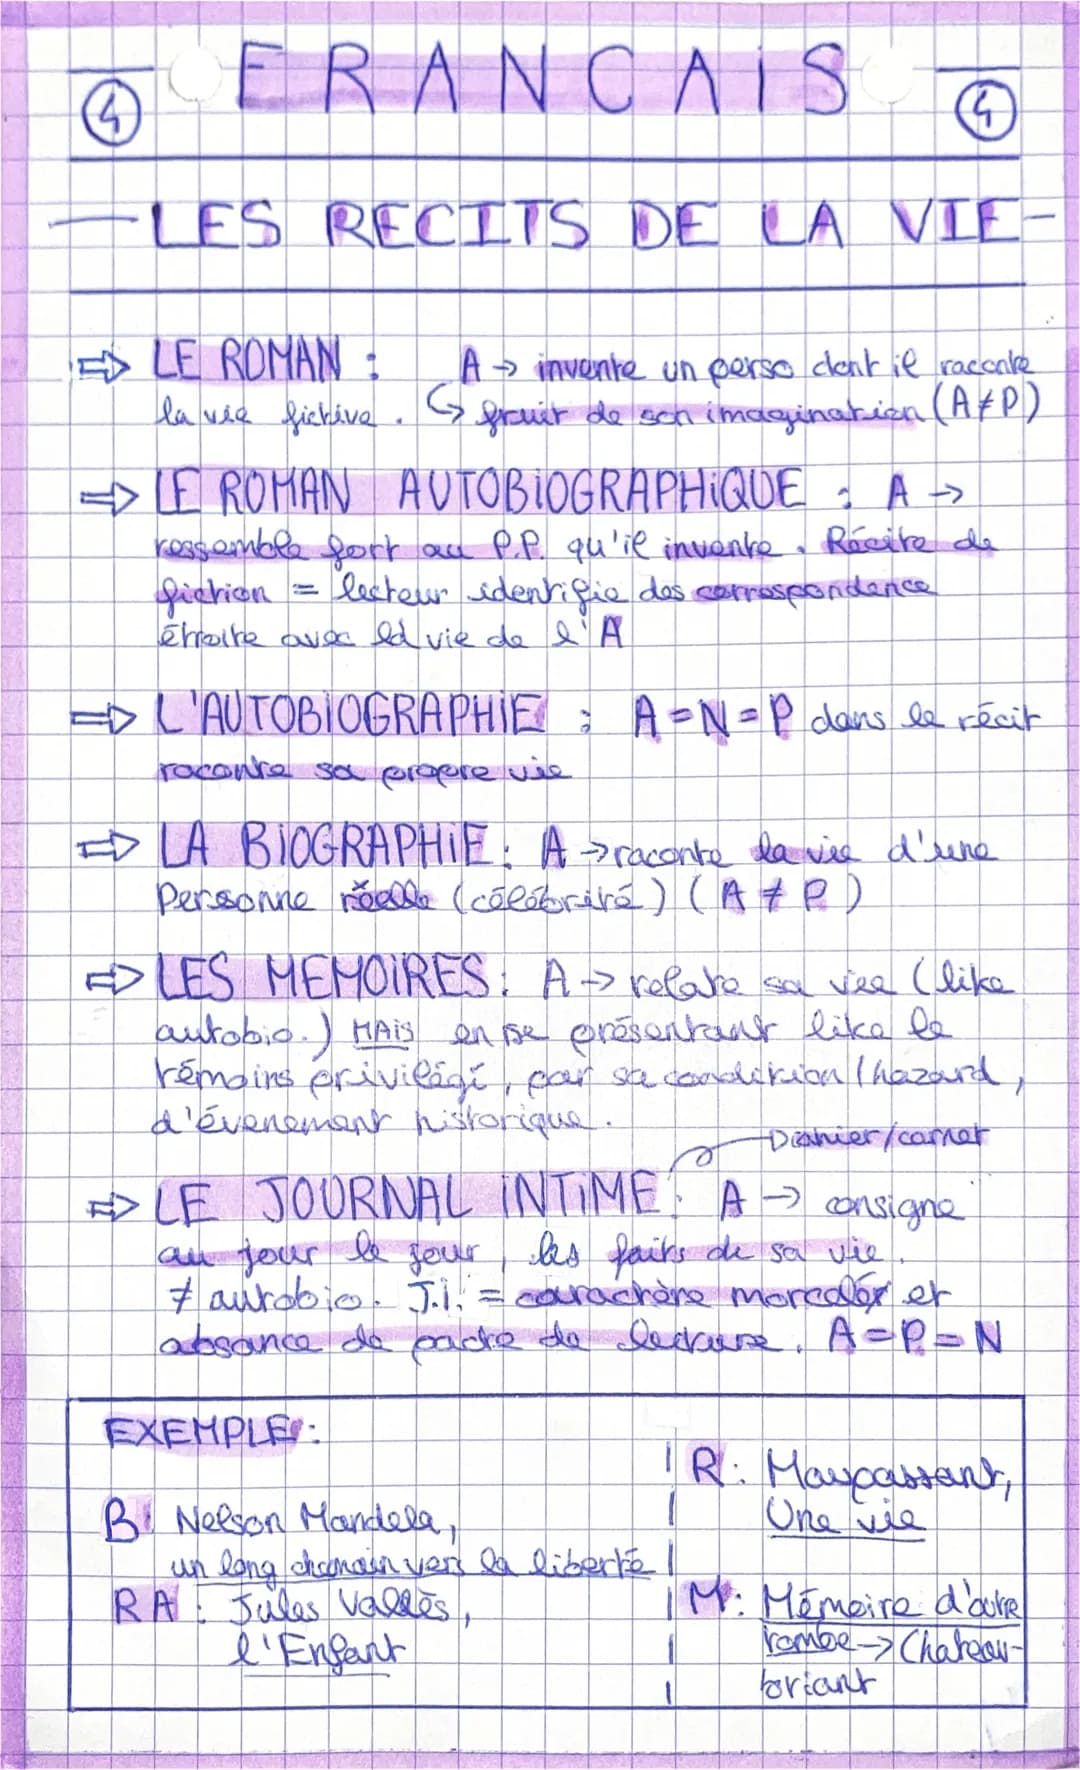 ④ FRANCAIS ④
LES RECITS DE LA VIE
⇒ LE ROMAN : A → invente un perso dont il raconte
la vie fictive. ↳ fruit de son imagination (A ≠ P)
⇒ LE ROMAN AUTOBIOGRAPHIQUE : A →
ressemble fort au P.P. qu'il invente. Récite de
fiction = lecteur identifie des correspondance
étroite avec la vie de l'A
⇒ L'AUTOBIOGRAPHIE : A = N = P dans le récit
raconte sa propre vie
⇒ LA BIOGRAPHIE : A → raconte la vie d'une
Personne réelle (célébrité) (A ≠ P)
⇒ LES MEMOIRES : A → relate sa vie (like
autobio.) MAIS en se présentant like le
témoins privilégi, par sa condition / hazard,
d'évenement historique.
/carnet
⇒ LE JOURNAL INTIME : A → consigne
au jour le jour, les faits de sa vie.
≠ autobio. J.I. = carachère morcelé et
absance de pacte de lecture. A = P = N
EXEMPLE :
B : Nelson Mandela,
un long chemain vers la liberté
RA : Jules Vallès,
l'Enfant
R : Maupassant,
Une vie
M : Mémoire d'outre
tombe → Chateau-
briant